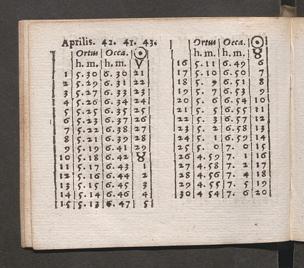 Aprilis. 42. 41. 43.
Ortus Occa. ☉
h. m. h. m. ♈
1 5. 30 6. 30 21
2 5. 29 6. 31 22
3 5. 27 6. 33 23
4 5. 26 6. 34 24
5 5. 25 6. 35 25
6 5. 23 6. 37 26
7 5. 22 6. 38 27
8 5. 21 6. 39 28
9 5. 19 6. 41 29
10 5. 18 6. 42 ♉
11 5. 17 6. 43 1
12 5. 16 6. 44 2
13 5. 15 6. 45 3
14 5. 14 6. 46 4
15 5. 13 6. 47 5
Ortus Occa. ☉
h. m. h. m. ♉
16 5. 11 6. 49 6
17 5. 10 6. 50 7
18 5. 9 6. 51 8
19 5. 7 6. 53 9
20 5. 6 6. 54 10
21 5. 5 6. 55 11
22 5. 3 6. 57 12
23 5. 2 6. 58 13
24 5. 1 6. 59 14
25 5. 0 7. 0 15
26 4. 59 7. 1 16
27 4. 58 7. 2 17
28 4. 57 7. 3 18
29 4. 56 7. 4 18
30 4. 54 7. 6 20